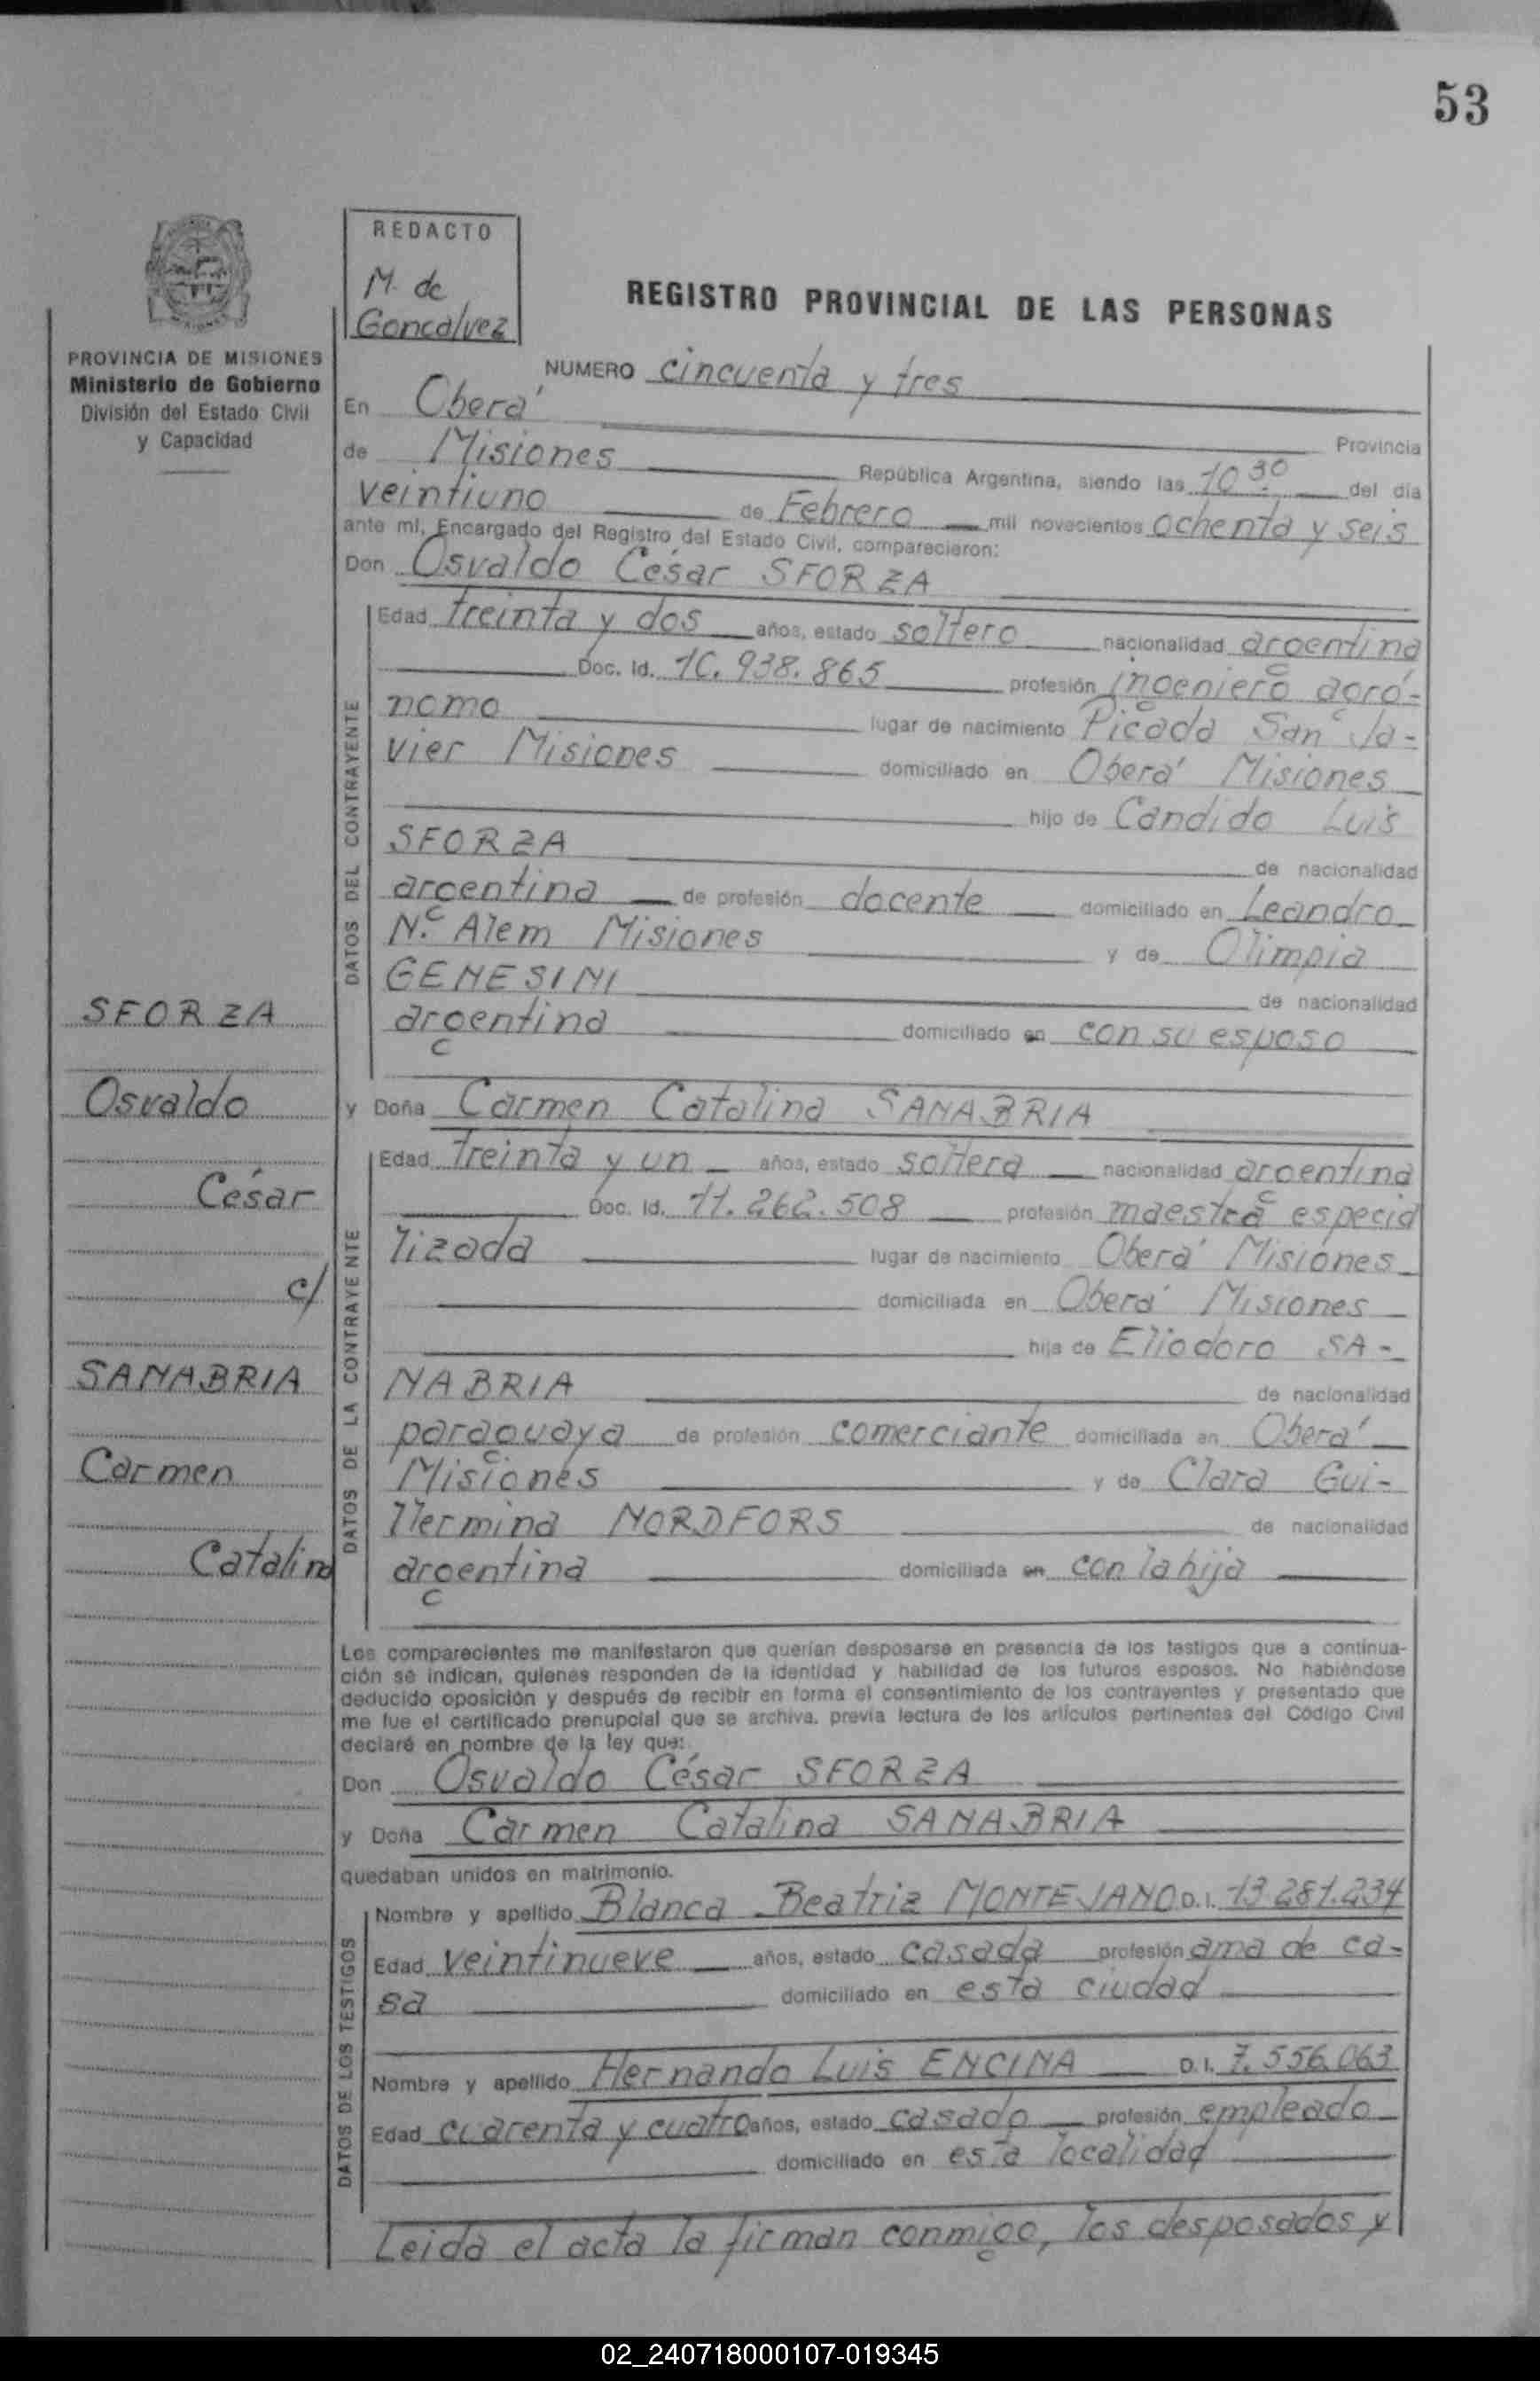 53
REDACTO
M. de
Goncalvez
REGISTRO PROVINCIAL DE LAS PERSONAS
PROVINCIA DE MISIONES
Ministerio de Gobierno
División del Estado Civil
y Capacidad
NUMERO cincuenta y tres
En Oberá Provincia
de Misiones República Argentina, siendo las 10 30 del día
veintiuno de Febrero mil novecientos ochenta y seis
ante mí, Encargado del Registro del Estado Civil, comparecieron:
Don Osvaldo César SFORZA
DATOS DEL CONTRAYENTE
Edad treinta y dos años, estado soltero nacionalidad argentina
Doc. Id. 10.938.865 profesión ingeniero agró-
nomo lugar de nacimiento Picada San Ja-
vier Misiones domiciliado en Oberá Misiones
hijo de Candido Luis
SFORZA de nacionalidad
argentina de profesión docente domiciliado en Leandro
N. Alem Misiones y de Olimpia
GENESINI de nacionalidad
argentina domiciliado en con su esposo
y Doña Carmen Catalina SANABRIA
DATOS DE LA CONTRAYENTE
Edad treinta y un años, estado soltera nacionalidad argentina
Doc. Id. 11.262.508 profesión maestra especia
lizada lugar de nacimiento Oberá Misiones
domiciliada en Oberá Misiones
hija de Eliodoro SA-
NABRIA de nacionalidad
paraguaya de profesión comerciante domiciliada en Oberá
Misiones y de Clara Gui-
llermina NORDFORS de nacionalidad
argentina domiciliada en con la hija
SFORZA
Osvaldo
César
c/
SANABRIA
Carmen
Catalina
Los comparecientes me manifestaron que querían desposarse en presencia de los testigos que a continua-
ción se indican, quienes responden de la identidad y habilidad de los futuros esposos. No habiéndose
deducido oposición y después de recibir en forma el consentimiento de los contrayentes y presentado que
me fue el certificado prenupcial que se archiva, previa lectura de los artículos pertinentes del Código Civil
declaré en nombre de la ley que:
Don Osvaldo César SFORZA
y Doña Carmen Catalina SANABRIA
quedaban unidos en matrimonio.
DATOS DE LOS TESTIGOS
Nombre y apellido Blanca Beatriz MONTEJANO D.I. 13.281.234
Edad veintinueve años, estado casada profesión ama de ca-
sa domiciliado en esta ciudad
Nombre y apellido Hernando Luis ENCINA D.I. 7.556.063
Edad cuarenta y cuatro años, estado casado profesión empleado
domiciliado en esta localidad
Leida el acta la firman conmigo, los desposados y
02_240718000107-019345